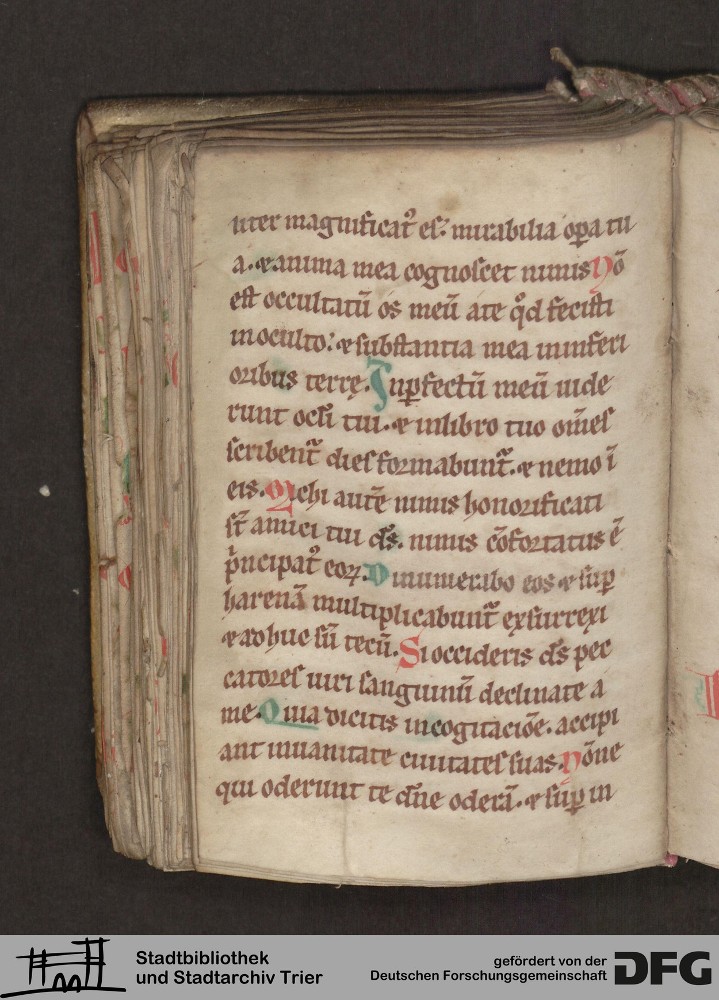 liter magnificatꝰ es: mirabilia oꝑa tu
a. ⁊ anima mea cognoscet nimis Nō
est occultatū os meū a te qͦd fecisti
in oculto: ⁊ substantia mea in inferi
oribus terrę. Inꝑfectū meū uide
runt ocli tui. ⁊ in libro tuo om̄es
scribent̃ dies formabunt̃. ⁊ nemo ī
eis. Michi autē nimis honorificati
st̄ amici tui ds̄. nimis cōfortatus ē
p̄ncipatꝰ eoꝝ. Dinumerabo eos ⁊ suꝑ
harenā multiplicabunt̃ exsurrexi
⁊ adhuc sū tecū. Si occideris ds̄ pec
catores uiri sanguinū declinate a
me. Quia dicitis in cogitaciōe. accipi
ant in uanitate ciuitates suas. Nōne
qui oderunt te dn̄e oderā. ⁊ suꝑ in
Stadtbibliothek
und Stadtarchiv Trier
gefördert von der
Deutschen Forschungsgemeinschaft
DFG